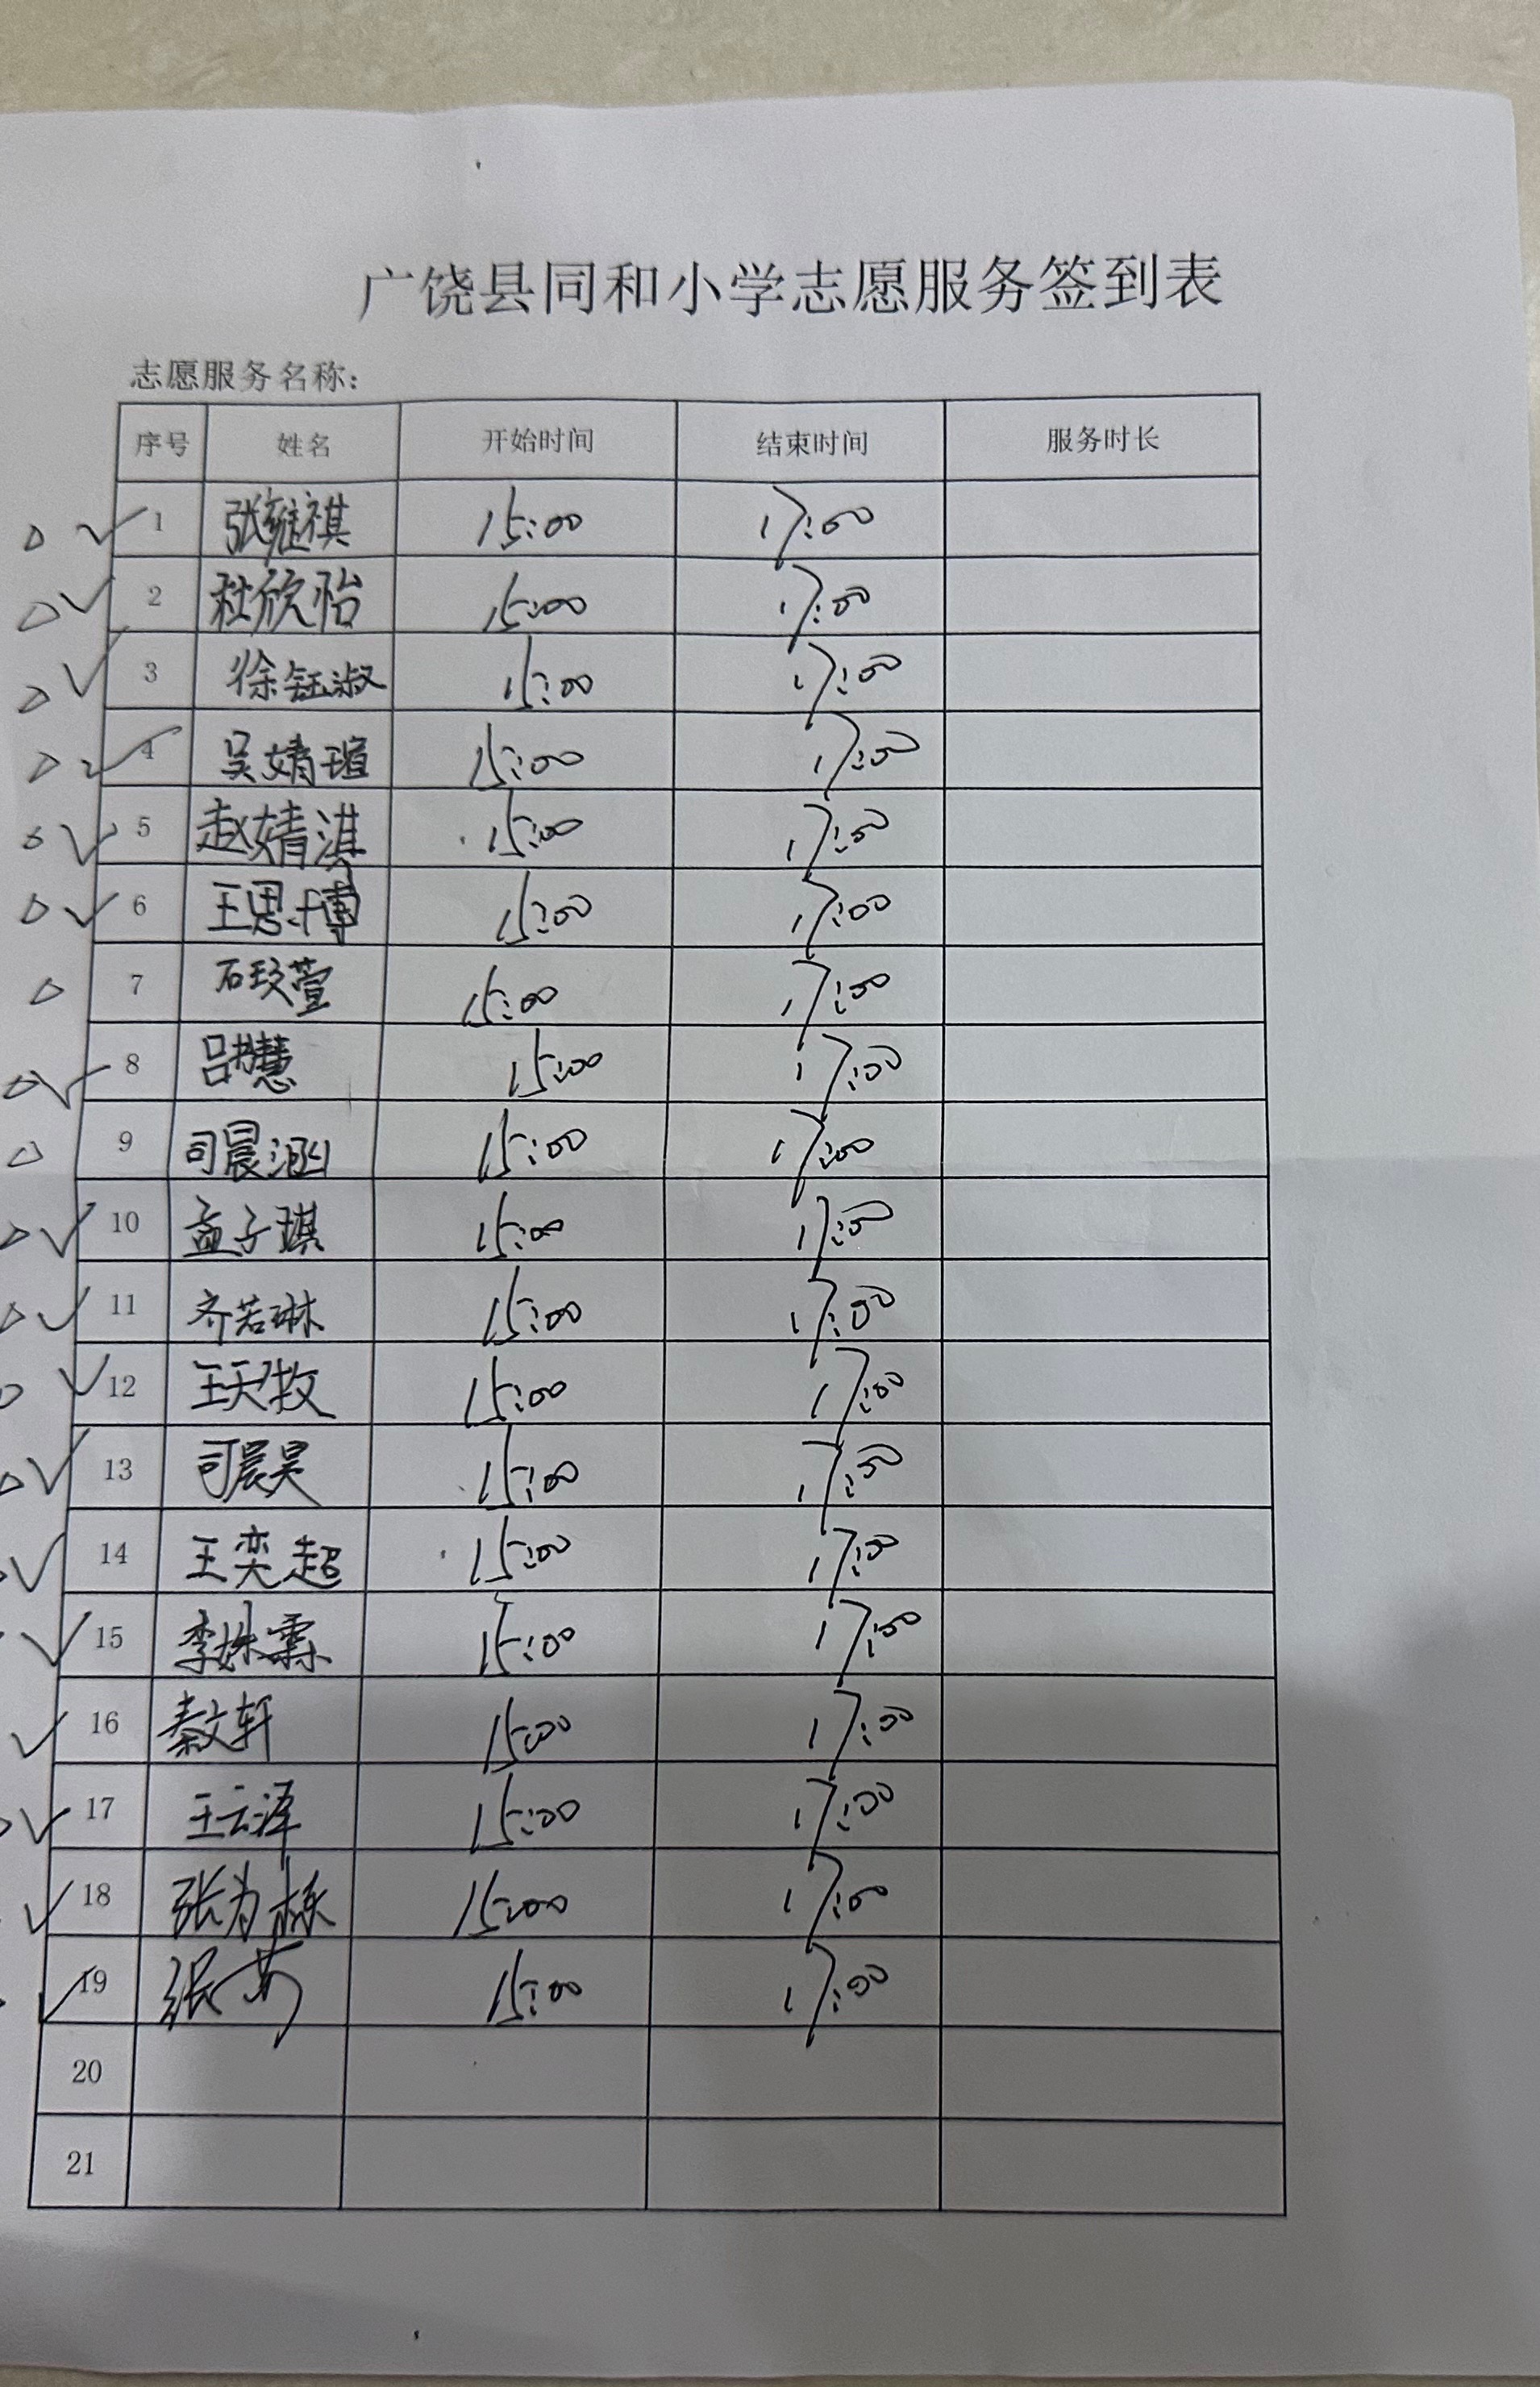 广饶县同和小学志愿服务签到表
志愿服务名称:
序号 姓名 开始时间 结束时间 服务时长
1 张雍祺 15:00 17:00
2 杜欣怡 15:00 17:00
3 徐钰淑 15:00 17:00
4 吴婧瑄 15:00 17:00
5 赵婧淇 15:00 17:00
6 王思博 15:00 17:00
7 石玟萱 15:00 17:00
8 吕书慧 15:00 17:00
9 司晨涵 15:00 17:00
10 孟子琪 15:00 17:00
11 齐若琳 15:00 17:00
12 王天牧 15:00 17:00
13 司晨昊 15:00 17:00
14 王奕超 15:00 17:00
15 李姝霖 15:00 17:00
16 秦文轩 15:00 17:00
17 王云泽 15:00 17:00
18 张为栋 15:00 17:00
19 15:00 17:00
20
21